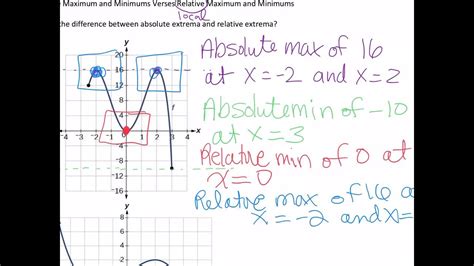 Maximum and Minimums Verses Relative Maximum and Minimums
local
the difference between absolute extrema and relative extrema?
Absolute max of 16
at x=-2 and x=2
Absolute min of -10
at x=3
Relative min of 0 at
x=0
Relative max of 16 a
x=-2 and x=
y
20
16
12
8
4
-4 -3 -2 -1 0 1 2 3 4 x
f
y
8
6
4
2